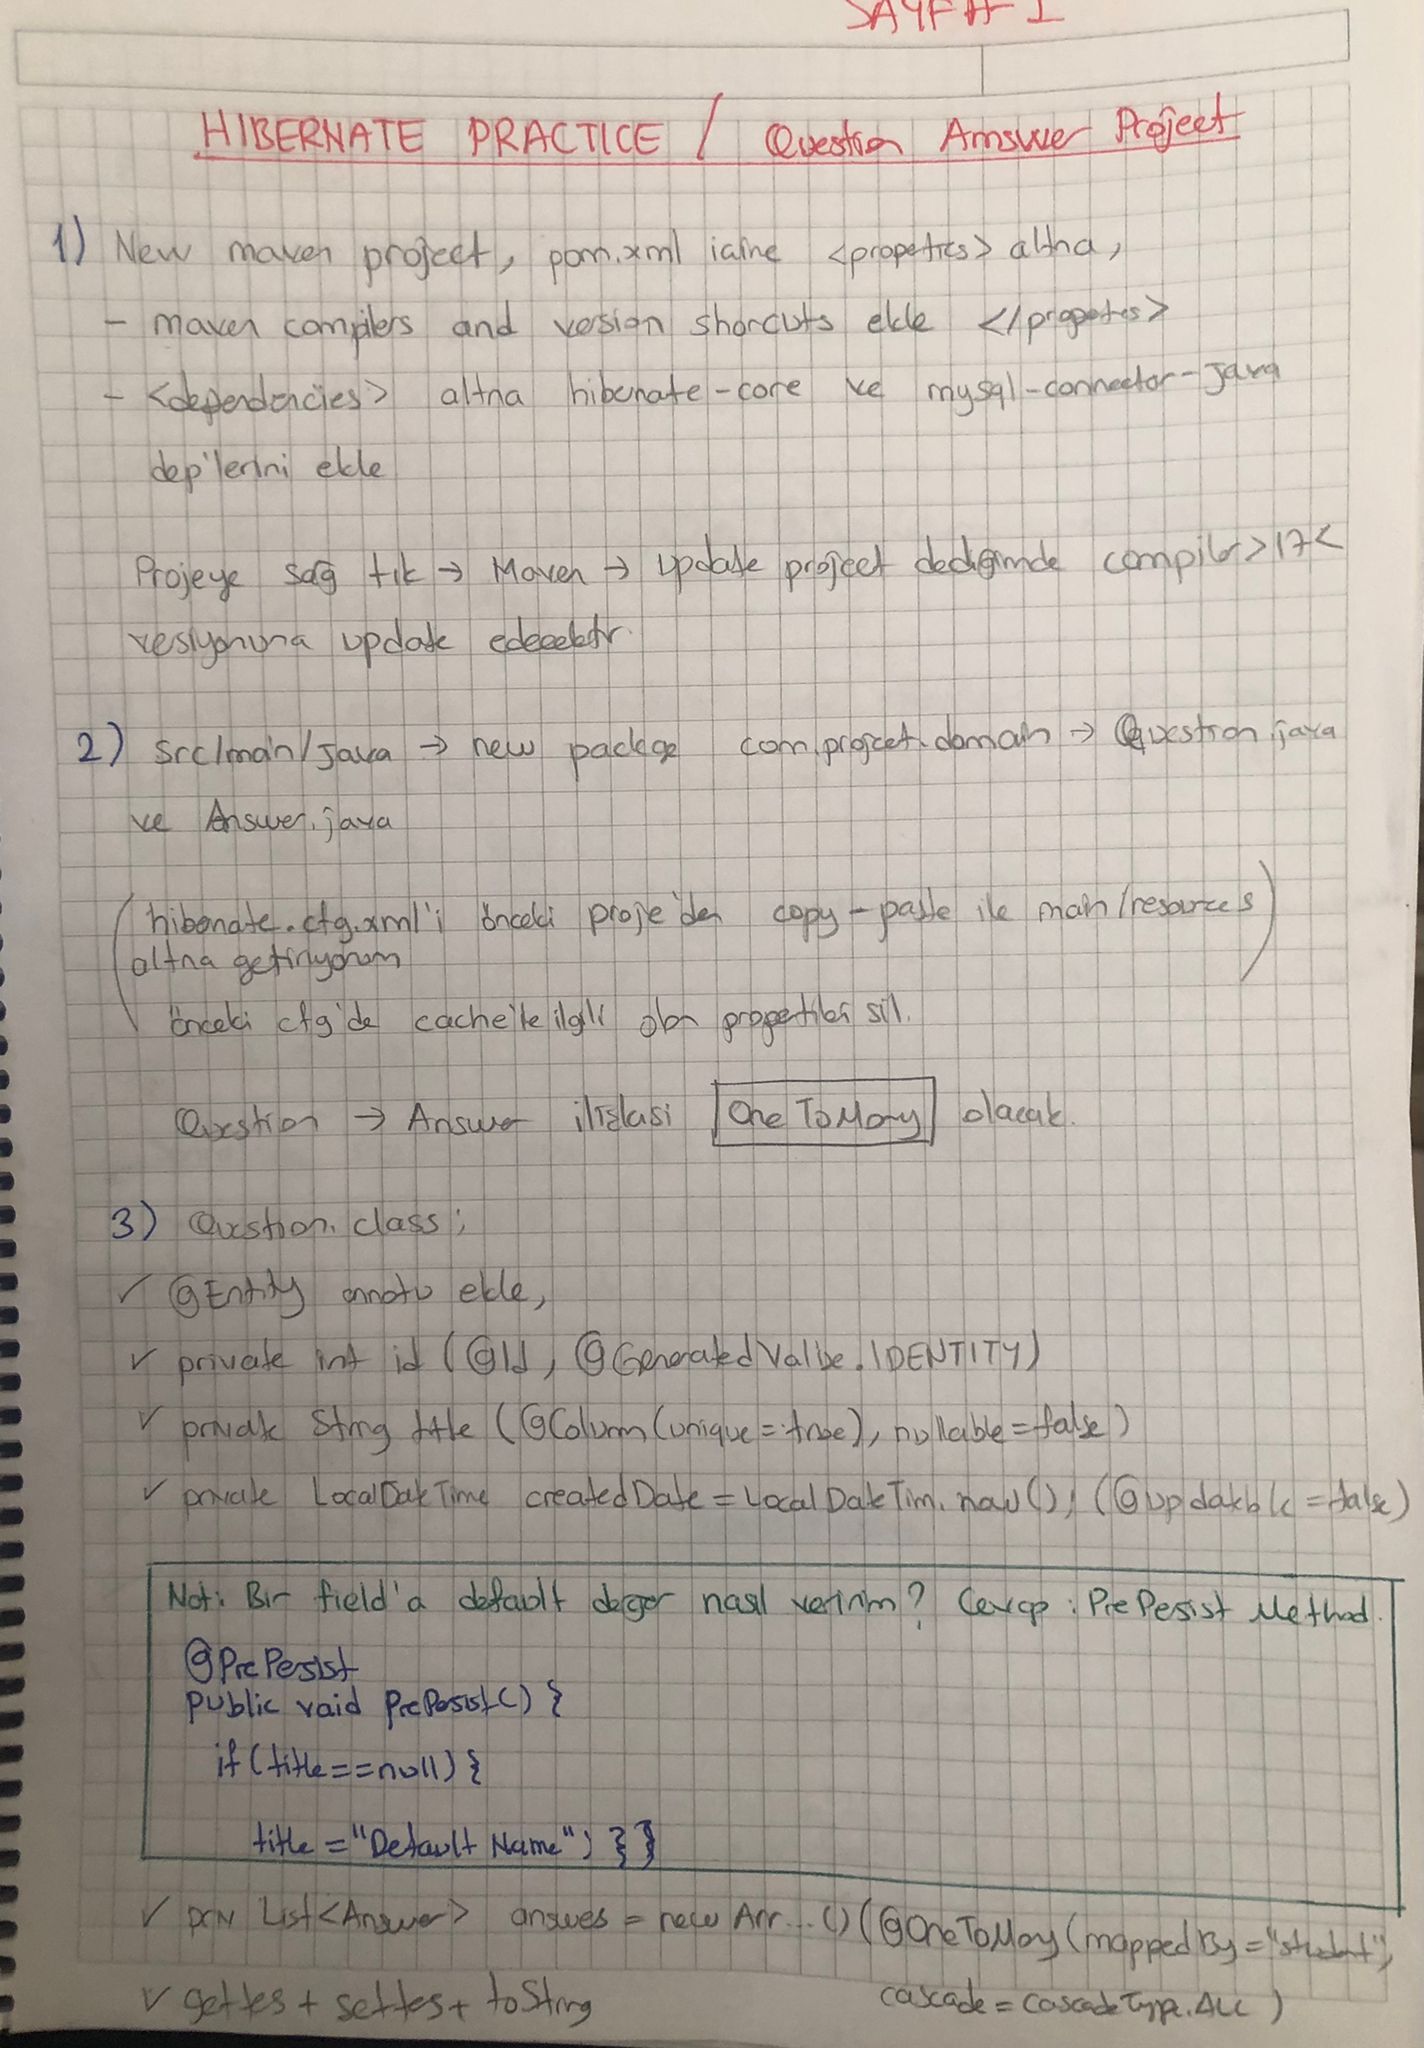 SAYFA-1
HIBERNATE PRACTICE / Question Answer Project
1) New maven project, pom.xml içine <properties> altına,
- maven compilers and version shorcuts ekle </properties>
- <dependencies> altına hibernate-core ve mysql-connector-java
dep'lerini ekle
Projeye sağ tık → Maven → update project dediğimde compiler>17<
versiyonuna update edecektir.
2) src/main/java → new package com.project.domain → Question.java
ve Answer.java
(hibernate.cfg.xml'i önceki proje'den copy-paste ile main/resources
altına getiriyorum)
önceki cfg'de cache ile ilgili olan propertileri sil.
Question → Answer ilişkisi OneToMany olacak.
3) Question.class;
✓ @Entity annotu ekle,
✓ private int id (@Id, @GeneratedValue.IDENTITY)
✓ private String title (@Column(unique=true), nullable=false)
✓ private LocalDateTime createdDate = LocalDateTim.now(); (@updatable=false)
Not: Bir field'a default değer nasıl veririm? Cevap: PrePersist Method.
@PrePersist
public void prePersist() {
if(title==null) {
title="Default Name"; } }
✓ priv List<Answer> answers = new Arr...() (@OneToMany(mappedBy="student",
cascade=CascadeType.ALL)
✓ getters + setters + toString